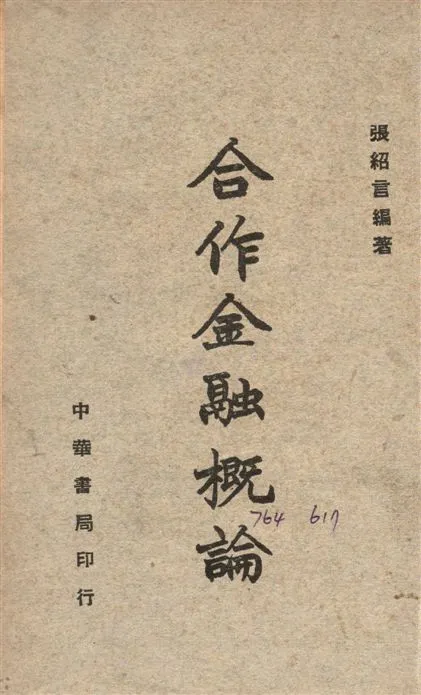 張紹言編著
合作金融概論
764 617
中華書局印行